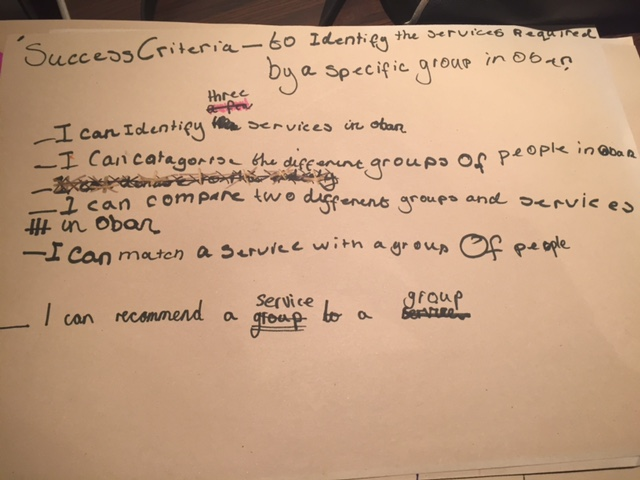 'Success Criteria — to Identify the services Required
by a specific group in Oban.
three
a few
_ I can Identify services in oban
_ I Can catagorise the different groups Of people in Oban
_ I can compare two different groups and services
in Oban
_ I Can match a service with a group Of people
service group
_ I can recommend a group to a service